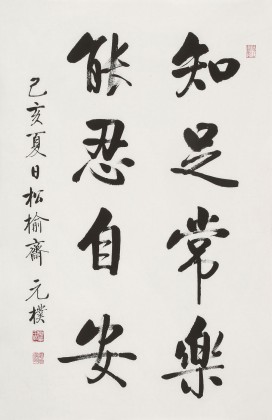 知足常樂
能忍自安
己亥夏日松榆齋元樸